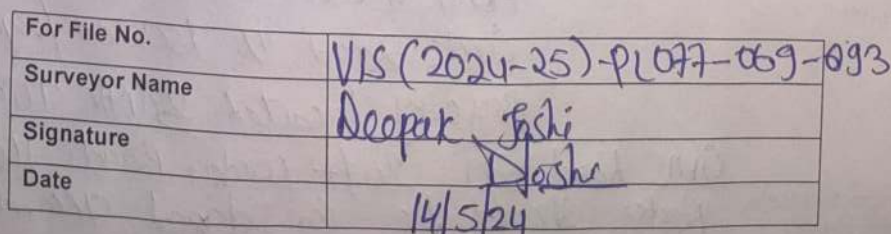 For File No. VIS (2024-25)-PL077-069-093
Surveyor Name Deepak Joshi
Signature DJoshi
Date 14/5/24